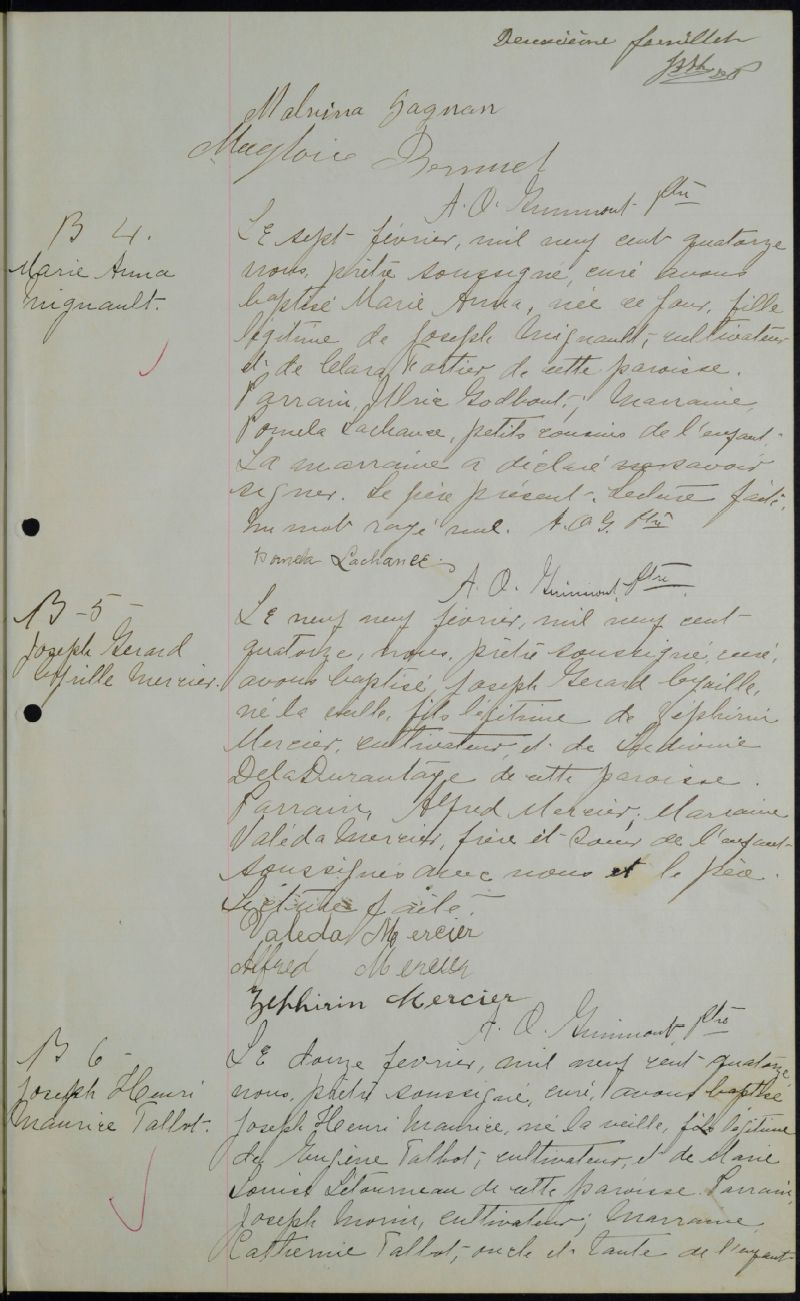 Deuxième feuillet
Malvina Gagnan
Magloire
A. O. Guimont ptre
B 4.
Marie Anna
Mignault.
Le sept février, mil neuf cent quatorze
nous, prêtre soussigné, curé avons
baptisé Marie Anna, née ce jour, fille
légitime de Joseph Mignault, cultivateur
et de Clara Fortier de cette paroisse.
Parrain, Ulric Godbout; Marraine,
Pomela Lachance, petits cousins de l'enfant.
La marraine a déclaré savoir
signer. Le père présent. Lecture faite.
Un mot rayé nul. A. O. G. Ptre
Pomela Lachance
A. O. Guimont, ptre.
B - 5 -
Joseph Gerard
Cyrille Mercier.
Le neuf neuf février, mil neuf cent
quatorze, nous, prêtre soussigné, curé,
avons baptisé, Joseph Gerard Cyrille,
né la veille, fils légitime de Zéphirin
Mercier, cultivateur, et de Ludivine
DelaDurantaye de cette paroisse.
Parrain, Alfred Mercier; Marraine
Valéda Mercier, frère et soeur de l'enfant
soussignés avec nous et le père.
Lecture faite.
Valeda Mercier
Alfred Mercier
Zephirin Mercier
A. O. Guimont, ptre
B 6 -
Joseph Henri
Maurice Talbot.
Le douze fevrier, mil neuf cent quatorze,
nous, prêtre soussigné, curé, avons baptisé
Joseph Henri Maurice, né la veille, fils légitime
de Eugène Talbot, cultivateur, et de Marie
Louise Létourneau de cette paroisse. Parrain,
Joseph Morin, cultivateur; Marraine,
Catherine Talbot, oncle et tante de l'enfant